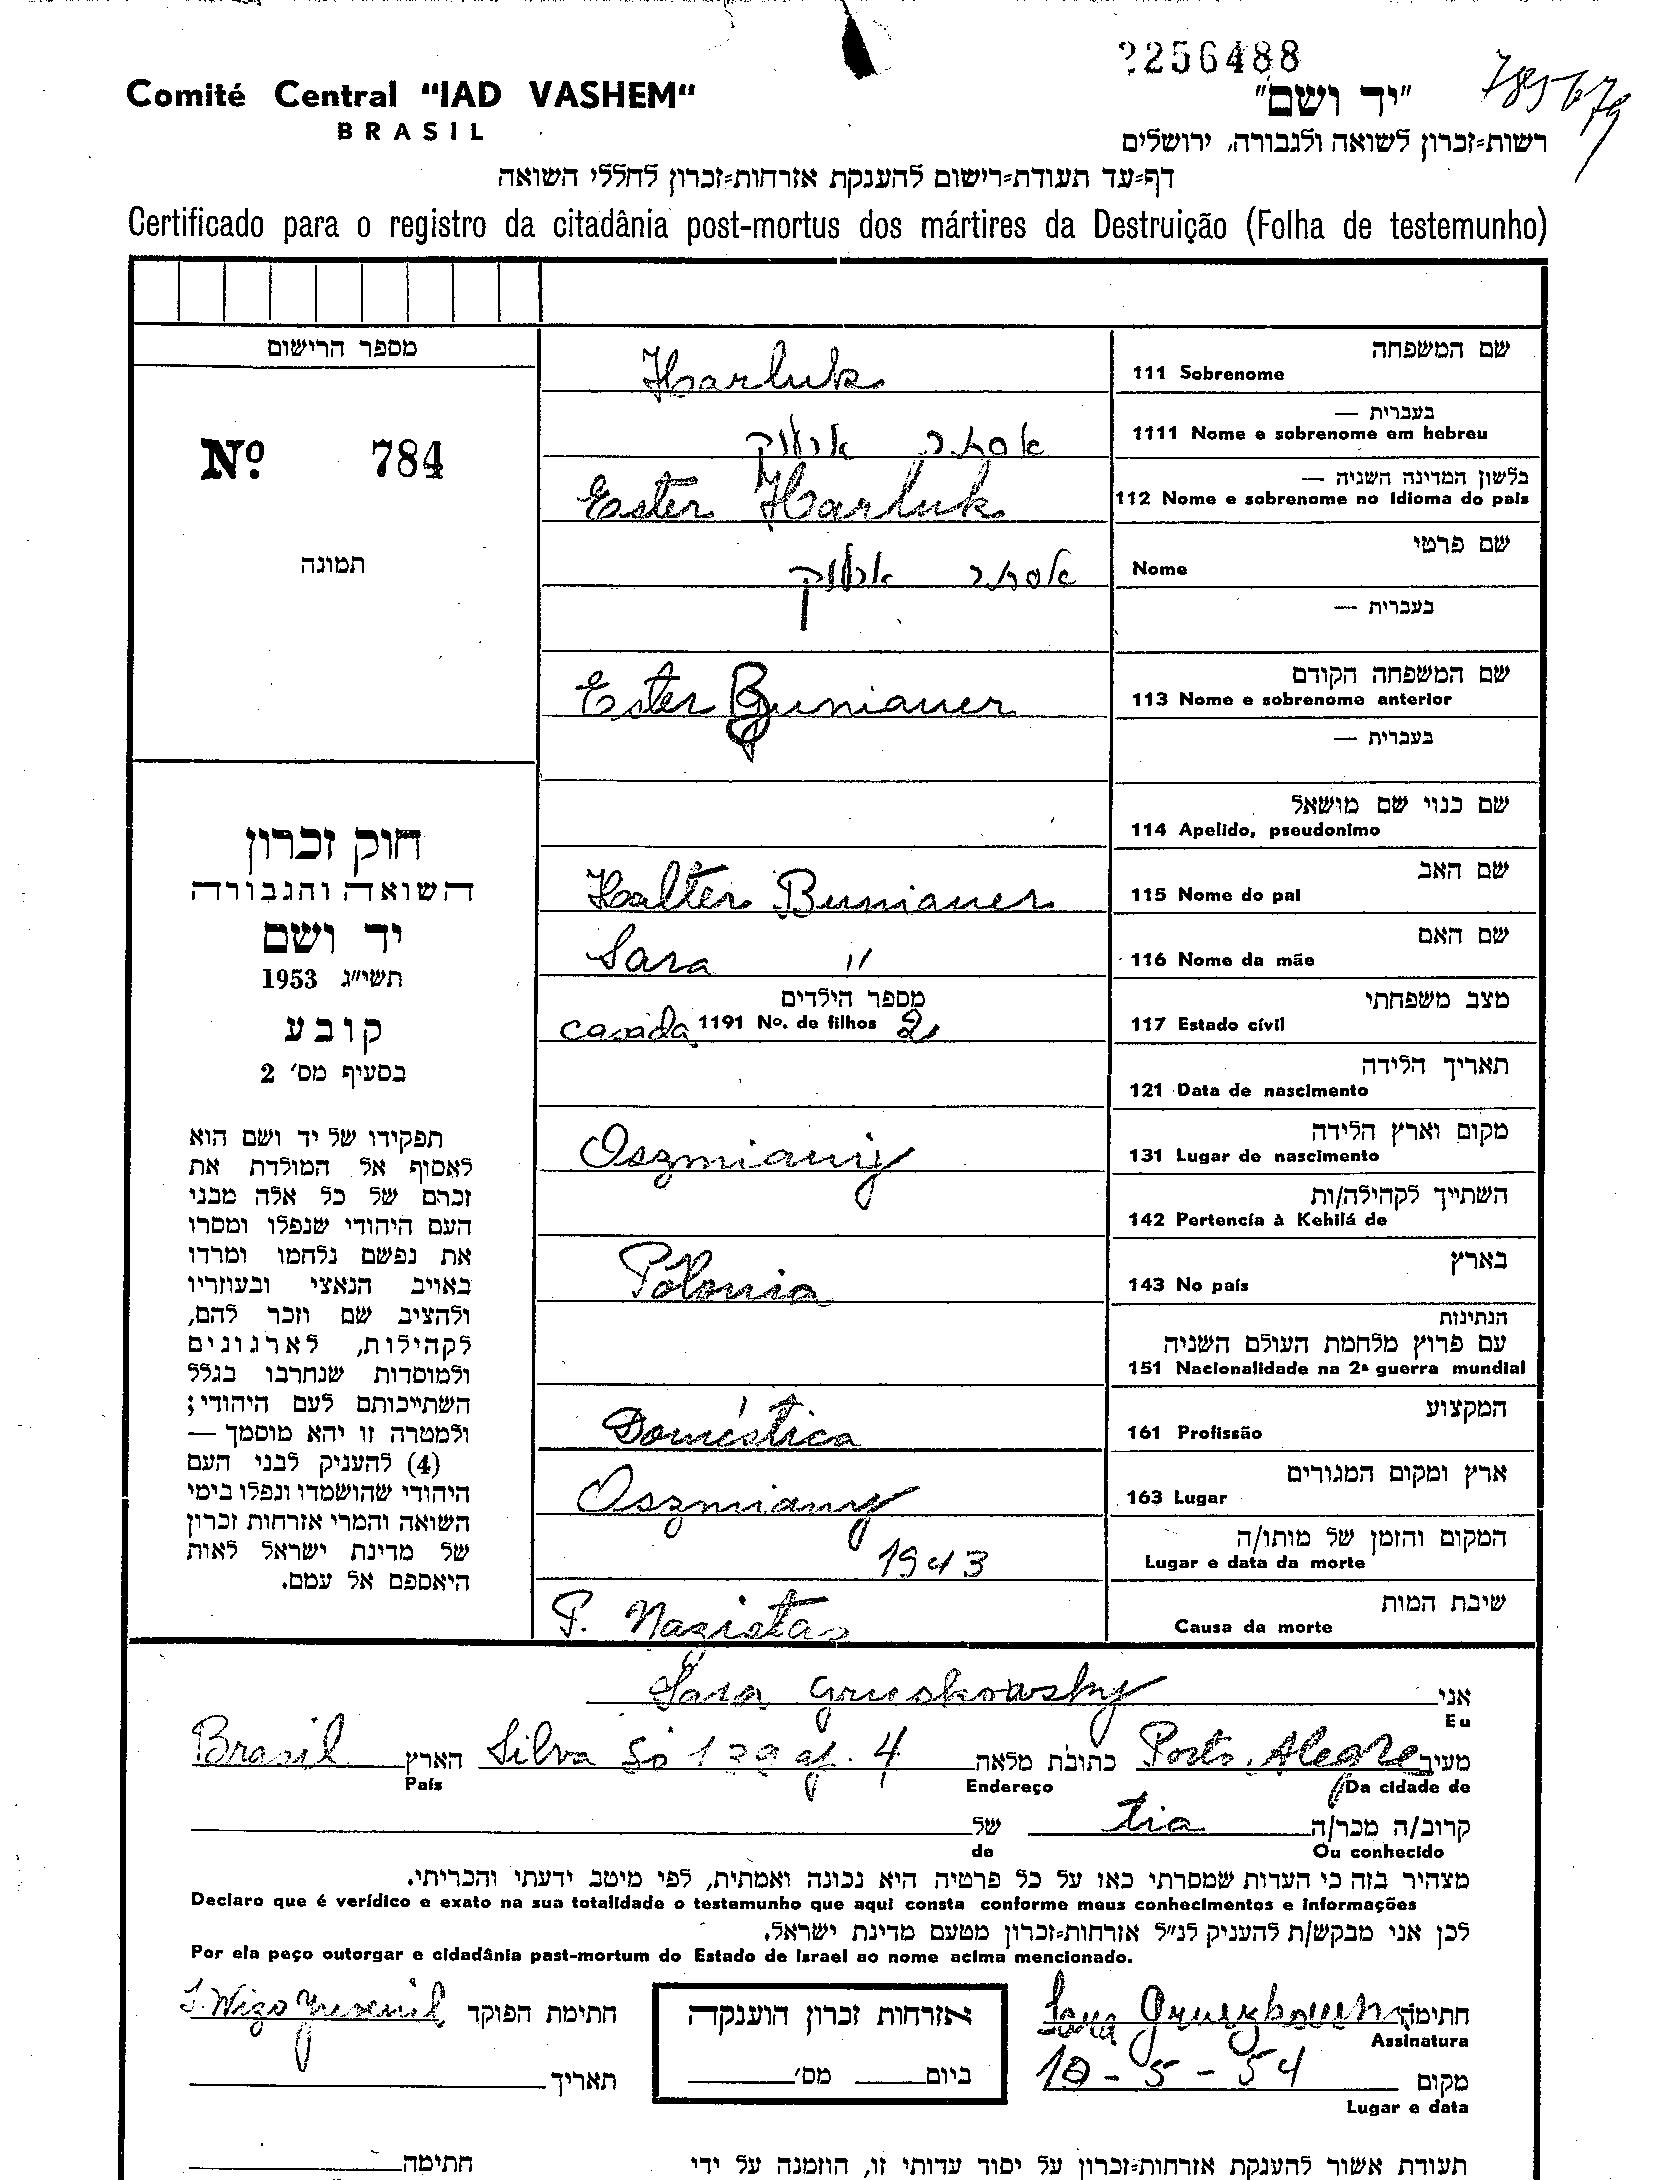 2256488
Comité Central "IAD VASHEM"
BRASIL
"יד ושם"
785679
רשות=זכרון לשואה ולגבורה, ירושלים
דף=עד תעודת=רישום להענקת אזרחות=זכרון לחללי השואה
Certificado para o registro da citadânia post-mortus dos mártires da Destruição (Folha de testemunho)
מספר הרישום
Nº. 784
תמונה
שם המשפחה
111 Sobrenome
Harluk
בעברית —
1111 Nome e sobrenome em hebreu
אסתר ארלוק
בלשון המדינה השניה —
112 Nome e sobrenome no idioma do país
Ester Harluk
שם פרטי
Nome
אסתר ארלוק
בעברית —
שם המשפחה הקודם
113 Nome e sobrenome anterior
Ester Bunianer
בעברית —
שם כנוי שם מושאל
114 Apelido, pseudonimo
שם האב
115 Nome do pai
Halter Bunianer
שם האם
116 Nome da mãe
Sara "
מצב משפחתי
117 Estado cívil
casada
מספר הילדים
1191 Nº. de filhos 2
תאריך הלידה
121 Data de nascimento
מקום וארץ הלידה
131 Lugar de nascimento
Oszmiany
השתייך לקהילה/ות
142 Pertencia à Kehilá de
בארץ
143 No país
Polonia
הנתינות
עם פרוץ מלחמת העולם השניה
151 Nacionalidade na 2ª guerra mundial
המקצוע
161 Profissão
Doméstica
ארץ ומקום המגורים
163 Lugar
Oszmiany
המקום והזמן של מותו/ה
Lugar e data da morte
1943
שיבת המות
Causa da morte
P. Nazistas
חוק זכרון
השואה והגבורה
יד ושם
תשי"ג 1953
קובע
בסעיף מס' 2
תפקידו של יד ושם הוא
לאסוף אל המולדת את
זכרם של כל אלה מבני
העם היהודי שנפלו ומסרו
את נפשם נלחמו ומרדו
באויב הנאצי ובעוזריו
ולהציב שם וזכר להם,
לקהילות, לארגונים
ולמוסדות שנחרבו בגלל
השתייכותם לעם היהודי;
ולמטרה זו יהא מוסמך —
(4) להעניק לבני העם
היהודי שהושמדו ונפלו בימי
השואה והמרי אזרחות זכרון
של מדינת ישראל לאות
היאספם אל עמם.
אני
Eu
Sara Gruskowsky
מעיר Porto Alegre כתובת מלאה Silva Só 139 ap. 4 הארץ Brasil
Da cidade de Endereço País
קרוב/ה מכר/ה tia של
Ou conhecido de
מצהיר בזה כי העדות שמסרתי כאן על כל פרטיה היא נכונה ואמתית, לפי מיטב ידעתי והכריתי.
Declaro que é verídico e exato na sua totalidade o testemunho que aqui consta conforme meus conhecimentos e informações
לכן אני מבקש/ת להעניק לנ"ל אזרחות=זכרון מטעם מדינת ישראל.
Por ela peço outorgar e cidadânia past-mortum do Estado de Israel ao nome acima mencionado.
חתימה
Assinatura
אזרחות זכרון הוענקה
ביום מס'
חתימת הפוקד
תאריך
מקום 10-5-54
Lugar e data
תעודת אשור להענקת אזרחות=זכרון על יסוד עדותי זו, הוזמנה על ידי
חתימה